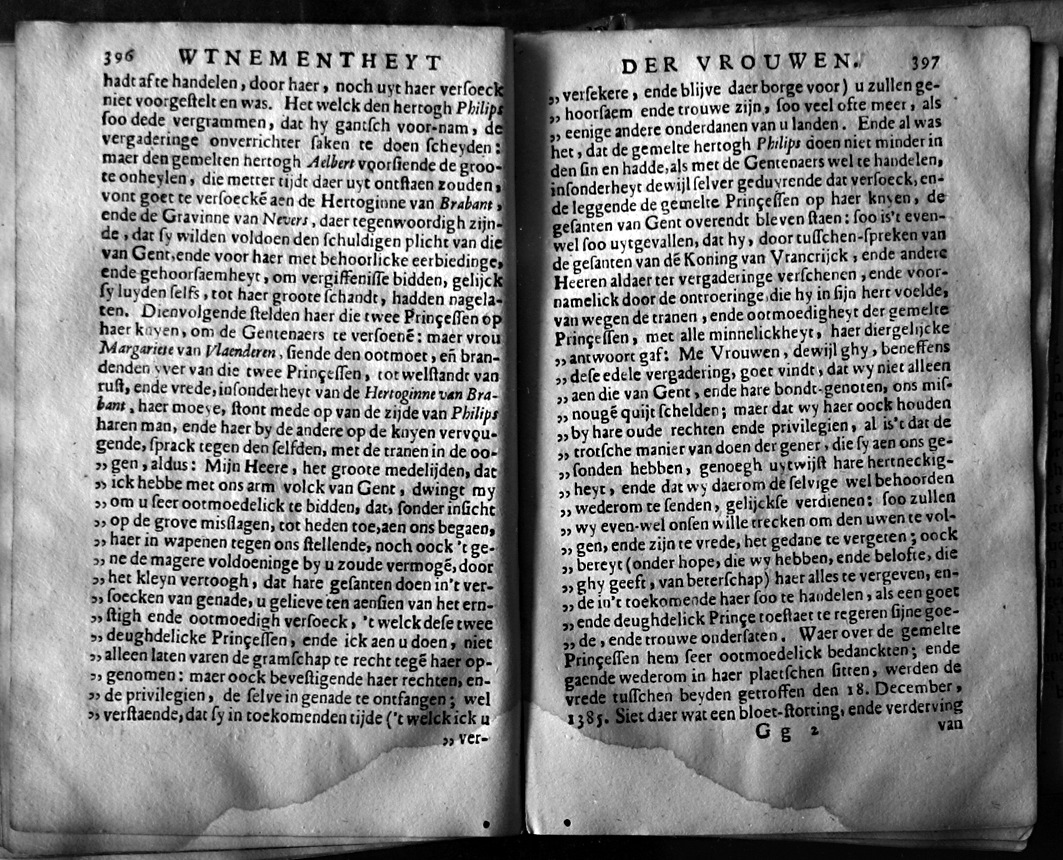 396 WTNEMENTHEYT
hadt af te handelen, door haer, noch uyt haer verſoeck
niet voorgeſtelt en was. Het welck den hertogh Philips
ſoo dede vergrammen, dat hy gantſch voor-nam, de
vergaderinge onverrichter ſaken te doen ſcheyden:
maer den gemelten hertogh Aelbert voorſiende de groo-
te onheylen, die metter tijdt daer uyt ontſtaen zouden,
vont goet te verſoeckē aen de Hertoginne van Brabant,
ende de Gravinne van Nevers, daer tegenwoordigh zijn-
de, dat ſy wilden voldoen den ſchuldigen plicht van die
van Gent, ende voor haer met behoorlicke eerbiedinge,
ende gehoorſaemheyt, om vergiffeniſſe bidden, gelijck
ſy luyden ſelfs, tot haer groote ſchandt, hadden nagela-
ten. Dienvolgende ſtelden haer die twee Prinçeſſen op
haer knyen, om de Gentenaers te verſoenē: maer vrou
Margariete van Vlaenderen, ſiende den ootmoet, eñ bran-
denden yver van die twee Prinçeſſen, tot welſtandt van
ruſt, ende vrede, inſonderheyt van de Hertoginne van Bra-
bant, haer moeye, ſtont mede op van de zijde van Philips
haren man, ende haer by de andere op de knyen vervou-
gende, ſprack tegen den ſelfden, met de tranen in de oo-
„ gen, aldus: Mijn Heere, het groote medelijden, dat
„ ick hebbe met ons arm volck van Gent, dwingt my
„ om u ſeer ootmoedelick te bidden, dat, ſonder inſicht
„ op de grove miſſlagen, tot heden toe, aen ons begaen,
„ haer in wapenen tegen ons ſtellende, noch oock 't ge-
„ ne de magere voldoeninge by u zoude vermogē, door
„ het kleyn vertoogh, dat hare geſanten doen in't ver-
„ ſoecken van genade, u gelieve ten aenſien van het ern-
„ ſtigh ende ootmoedigh verſoeck, 't welck deſe twee
„ deughdelicke Prinçeſſen, ende ick aen u doen, niet
„ alleen laten varen de gramſchap te recht tegē haer op-
„ genomen: maer oock beveſtigende haer rechten, en-
„ de privilegien, de ſelve in genade te ontfangen; wel
„ verſtaende, dat ſy in toekomenden tijde ('t welck ick u
„ ver-
DER VROUWEN. 397
„ verſekere, ende blijve daer borge voor) u zullen ge-
„ hoorſaem ende trouwe zijn, ſoo veel ofte meer, als
„ eenige andere onderdanen van u landen. Ende al was
het, dat de gemelte hertogh Philips doen niet minder in
den ſin en hadde, als met de Gentenaers wel te handelen,
inſonderheyt dewijl ſelver geduyrende dat verſoeck, en-
de leggende de gemelte Prinçeſſen op haer knyen, de
geſanten van Gent overendt bleven ſtaen: ſoo is't even-
wel ſoo uytgevallen, dat hy, door tuſſchen-ſpreken van
de geſanten van dē Koning van Vrancrijck, ende andere
Heeren aldaer ter vergaderinge verſchenen, ende voor-
namelick door de ontroeringe, die hy in ſijn hert voelde,
van wegen de tranen, ende ootmoedigheyt der gemelte
Prinçeſſen, met alle minnelickheyt, haer diergelijcke
„ antwoort gaf: Me Vrouwen, dewijl ghy, beneffens
„ deſe edele vergadering, goet vindt, dat wy niet alleen
„ aen die van Gent, ende hare bondt-genoten, ons miſ-
„ nougē quijt ſchelden; maer dat wy haer oock houden
„ by hare oude rechten ende privilegien, al is't dat de
„ trotſche manier van doen der gener, die ſy aen ons ge-
„ ſonden hebben, genoegh uytwijſt hare hertneckig-
„ heyt, ende dat wy daerom de ſelvige wel behoorden
„ wederom te ſenden, gelijckſe verdienen: ſoo zullen
„ wy even-wel onſen wille trecken om den uwen te vol-
„ gen, ende zijn te vrede, het gedane te vergeten; oock
„ bereyt (onder hope, die wy hebben, ende belofte, die
„ ghy geeft, van beterſchap) haer alles te vergeven, en-
„ de in't toekomende haer ſoo te handelen, als een goet
„ ende deughdelick Prinçe toeſtaet te regeren ſijne goe-
„ de, ende trouwe onderſaten. Waer over de gemelte
Prinçeſſen hem ſeer ootmoedelick bedanckten; ende
gaende wederom in haer plaetſchen ſitten, werden de
vrede tuſſchen beyden getroffen den 18. December,
1385. Siet daer wat een bloet-ſtorting, ende verderving
G g 2 van